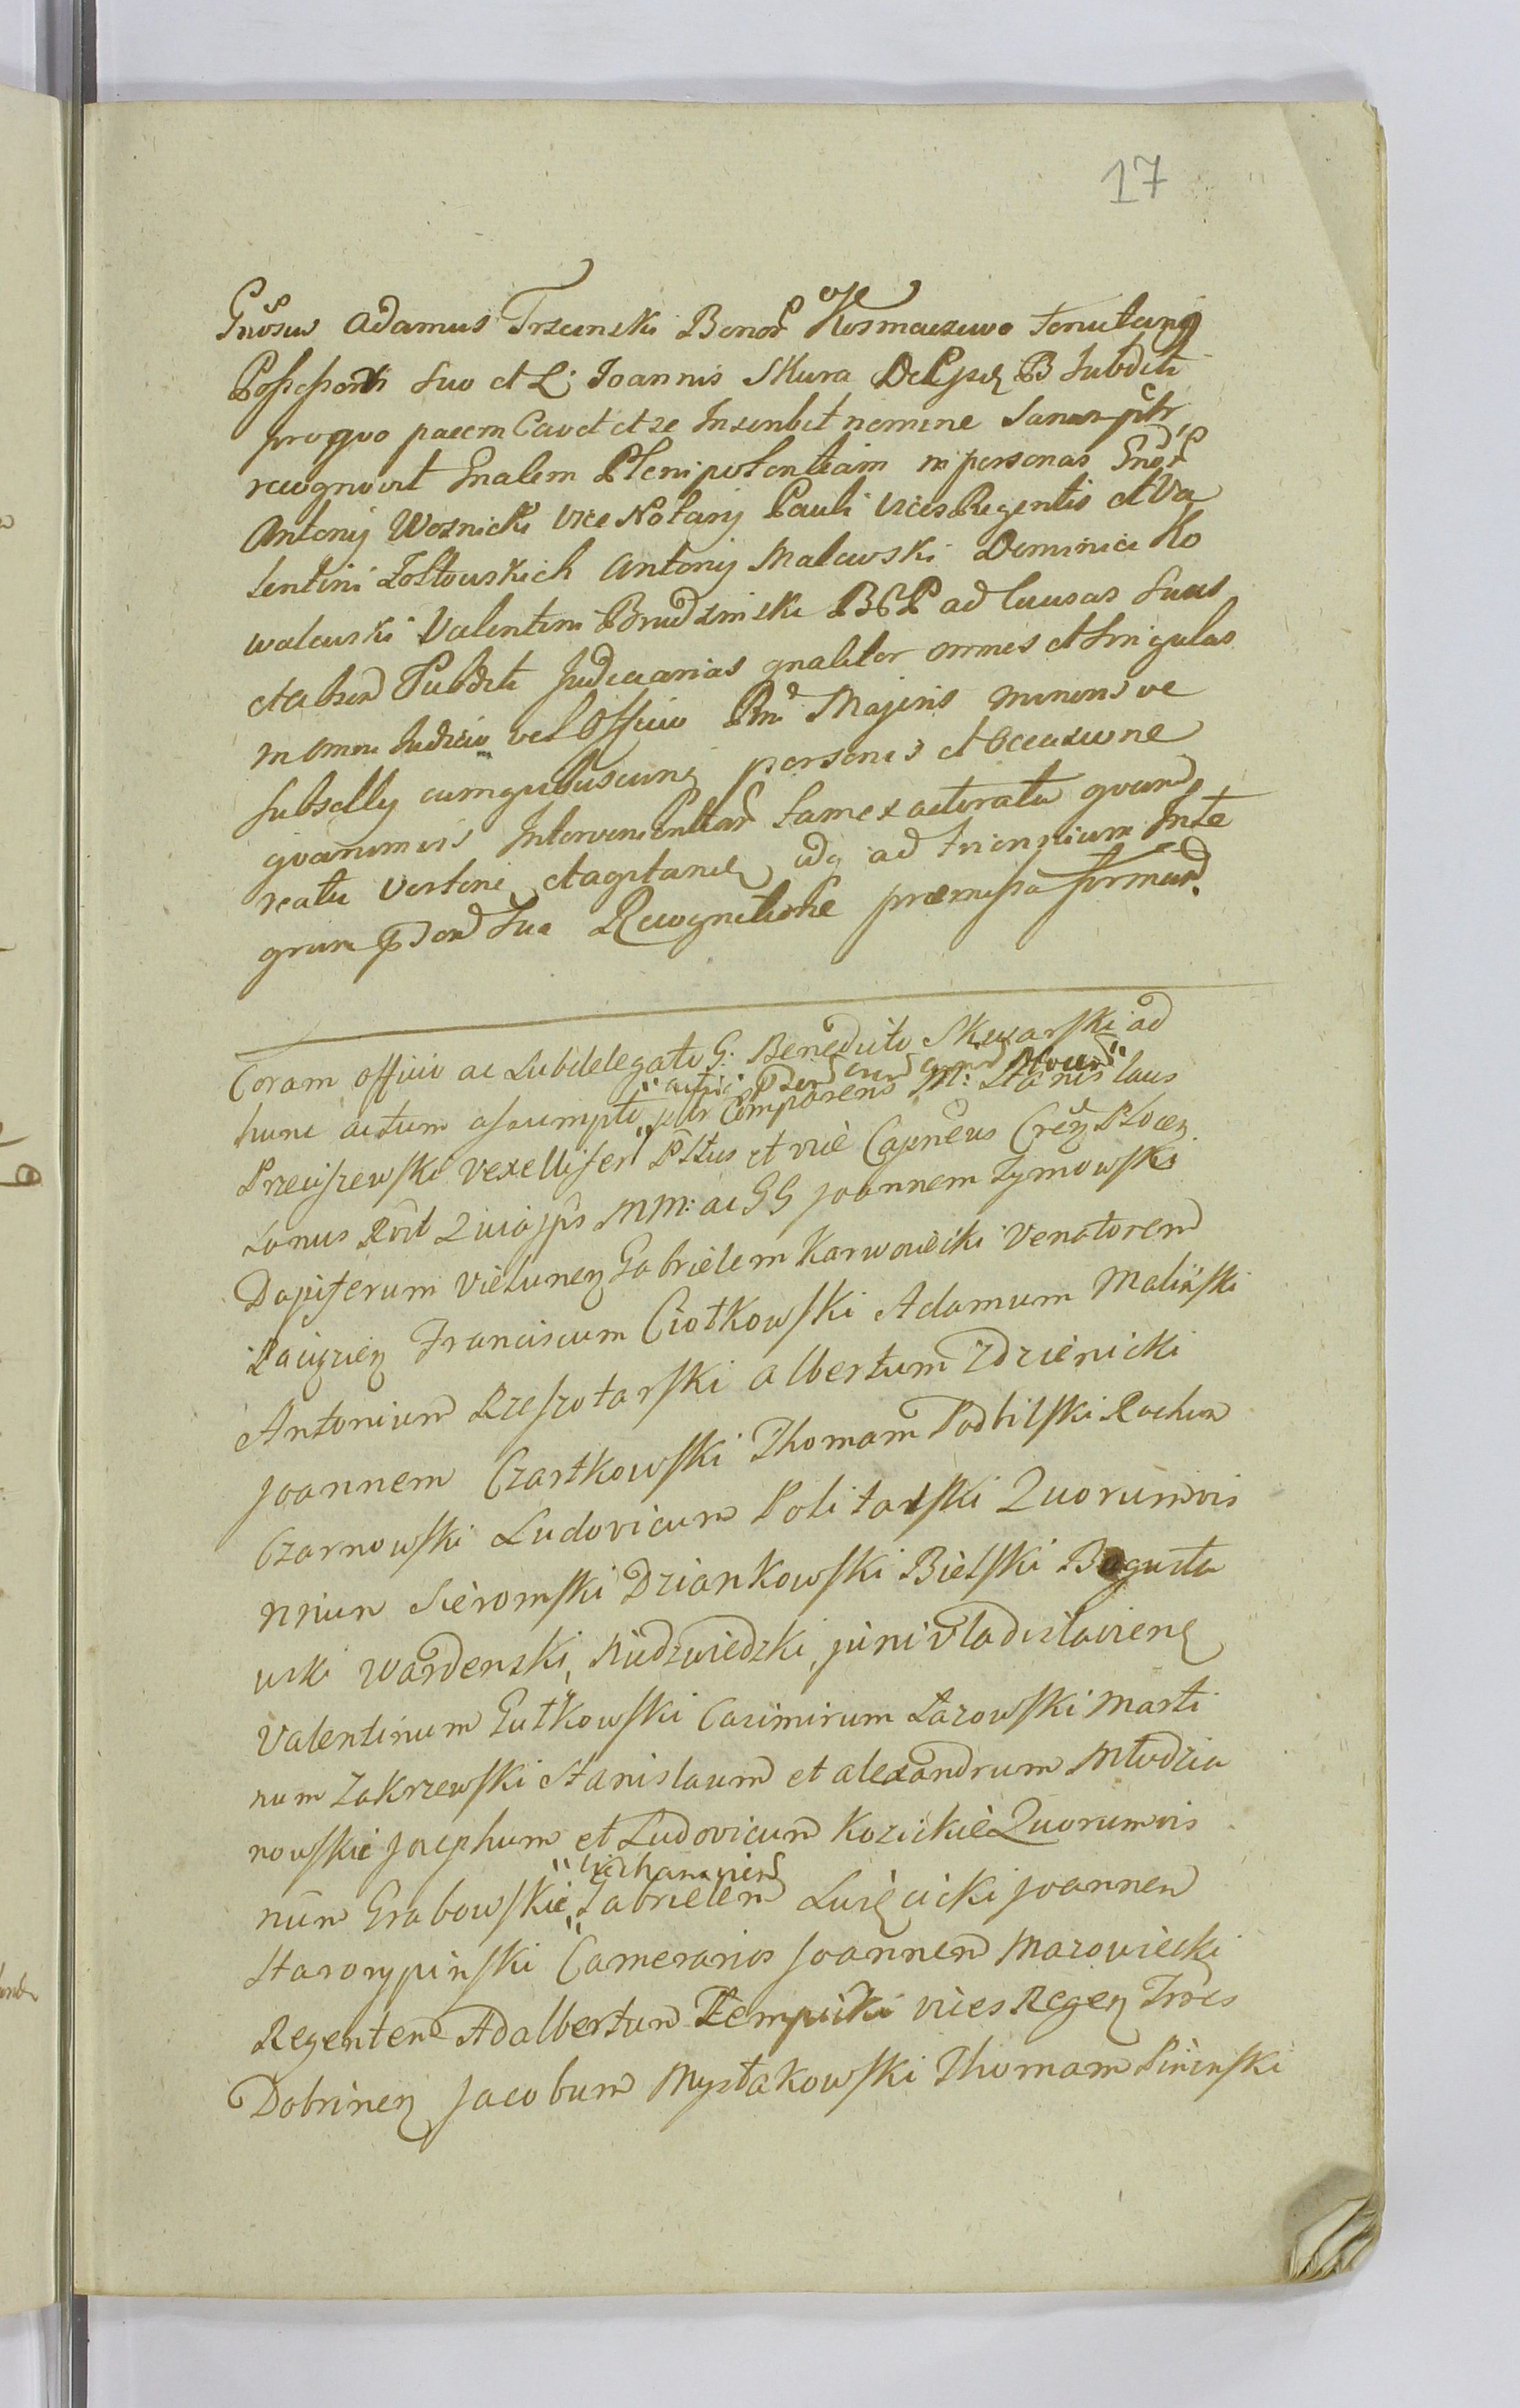 17
Gnosus Adamus Trzcinski Bonor Kosmaczewo Tenutariq
Possessor Suo et L: Joannis Skura De Ejsdz B Subditi
pro quo paeem Cavet et se Inscribet nomine Sanus ptr
recognovit Gnalem Plenipotentiam in personas Gnor
Antonij Woznicki Vice Notarij Pauli Vices Regentis et Va
lentini Zołtowskich Antonij Malewski Dominici Ko
walewski Valentini Brudzinski BCP ad Causas Suas
et Subditi Judiciarias gnaliter omnes et Singulas
in omni Judicio vel Officio Rni Majoris minorisve
Subsellij cumquibuscunq personis et Occasione
quavimvis Intervenientiar tam ex actoratu quam
reatu vertene et agitane, idq ad triennium Inte
grum Sua Recognitione praemissa formand.
Coram officio ac Subdelegato G: Benedicto Skwarski ad
hunc actum assumpto ptr Comparens M: Stanislaus
" actus Plocen "
Preciszewski Vexillifer Pltus et vice Capneus Creñz Plocez
Sanus Rovt Quiajps MM: ac GG Joannem Tymowski
Dapiferum Vielunez Gabrielem Karwowiecki Venatorem
Raciązien Franciscum Ciotkowski Adamum Maliński
Antonium Rzeszotarski Albertum Zdzienicki
Joannem Czartkowski Thomam Podbilski Rochum
Czarnowski Ludovicum Politalski Quorumvis
nniun Sieromski Dziankowski Bielski Bogusła
wski Wardenski, Niedzwiedzki, juni Vladislavienz
Valentinum Gutkowski Casimirum Łazowski Marti
num Zakrzewski Stanislaum et Alexandrum Młodzia
nowskie Josephum et Ludovicum Kozickie Quorumvis
nūn Grabowskie Gabrielem Lusięcicki Joannem
Starorypinski Camerarios Joannem Mazowiecki
Regentem Adalbertum Zempicki vices Regen Trrēs
Dobrinez Jacobum Mystakowski Thomam Pininski